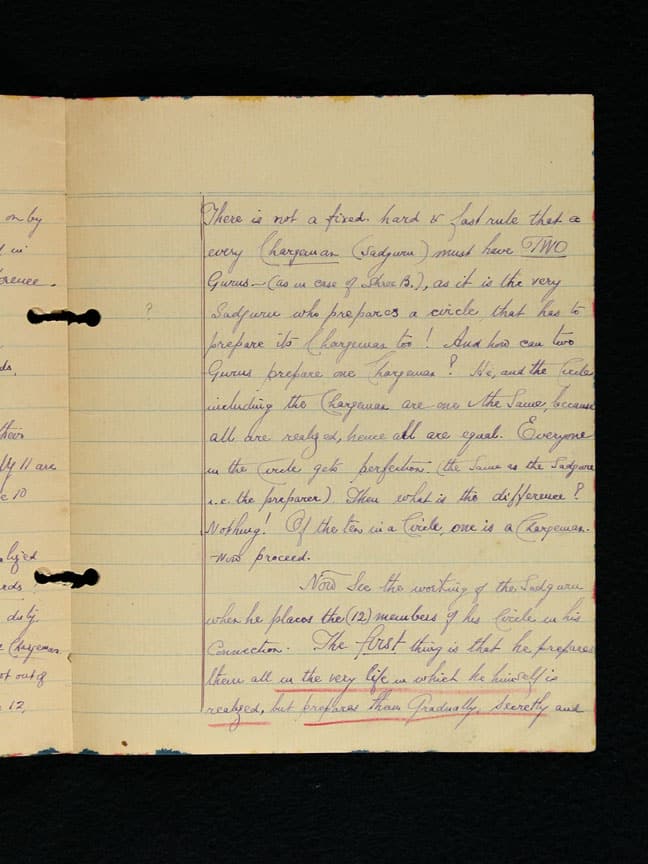 on by
in
erence.
ds,
their
ly 11 are
e 10
lized
ards
duty
e Chargeman
ot out of
e 12,
?
There is not a fixed hard & fast rule that a
every Chargeman (Sadguru) must have TWO
Gurus— (as in case of Shree B.), as it is the very
Sadguru who prepares a circle that has to
prepare its Chargeman too! And how can two
Gurus prepare one Chargeman? He, and the Circle
including the Chargeman are one & the Same, because
all are realized, hence all are equal. Everyone
in the Circle gets perfection (the Same as the Sadguru
i.e. the preparer). Then what is the difference?
Nothing! Of the ten in a Circle, one is a Chargeman.
Now proceed.
Now See the working of the Sadguru
when he places the (12) members of his Circle in his
Connection. The first thing is that he prepares
them all in the very life in which he himself is
realized, but prepares them Gradually, Secretly and